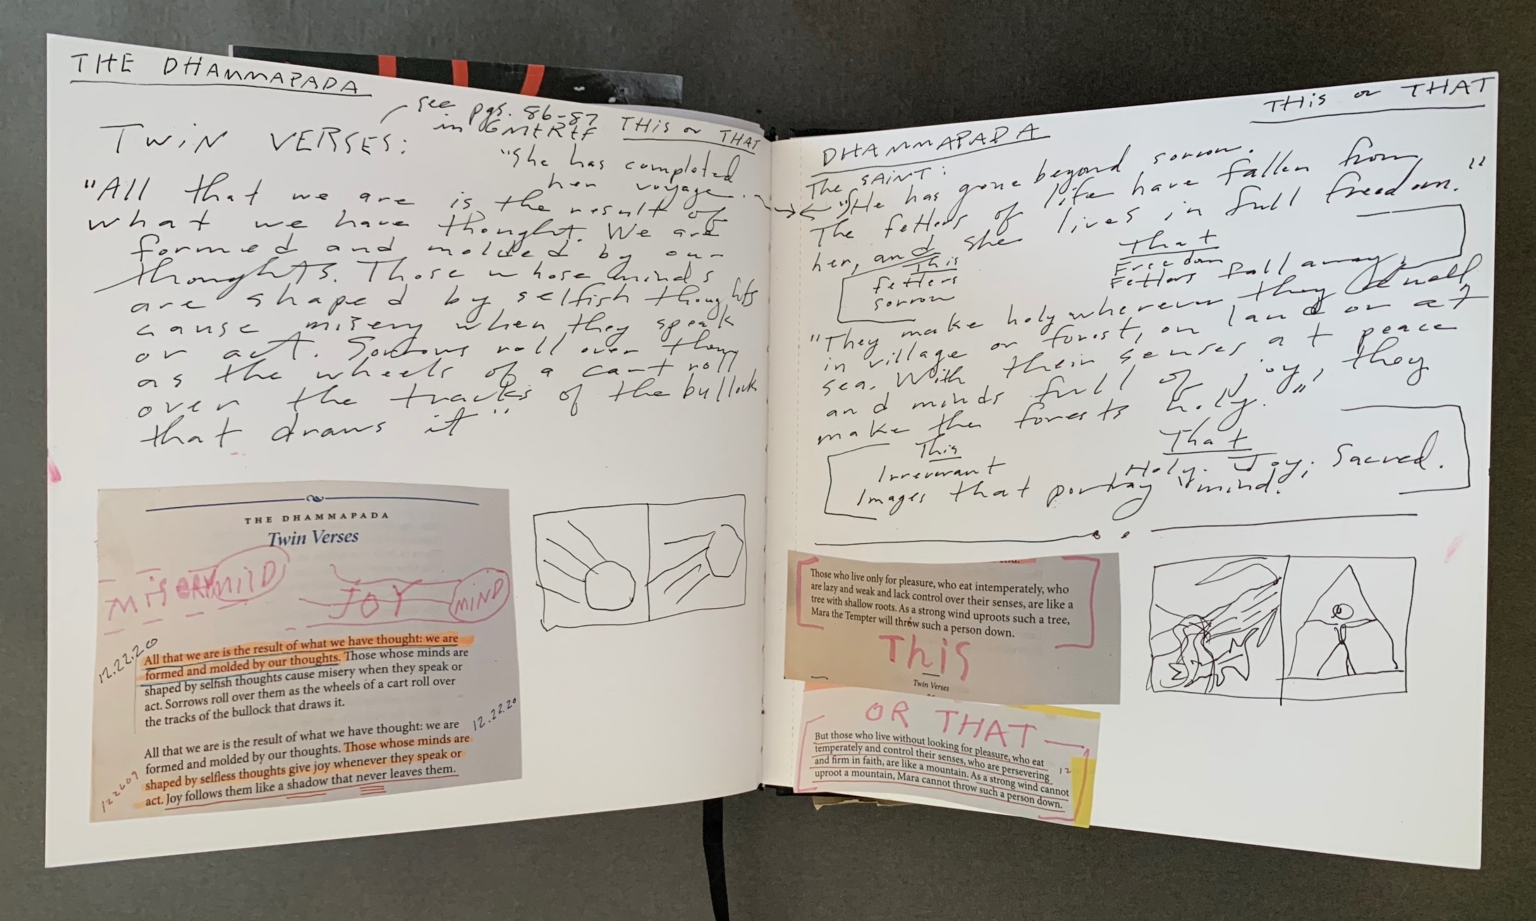 THE DHAMMAPADA
see pgs. 86-87
in GMtRtF
THIS or THAT
TWIN VERSES:
"She has completed
her voyage.
"All that we are is the result of
what we have thought. We are
formed and molded by our
thoughts. Those whose minds
are shaped by selfish thoughts
cause misery when they speak
or act. Sorrows roll over them
as the wheels of a cart roll
over the tracks of the bullock
that draws it"
THE DHAMMAPADA
Twin Verses
MISERY MIND
JOY MIND
12.22.20
All that we are is the result of what we have thought: we are
formed and molded by our thoughts. Those whose minds are
shaped by selfish thoughts cause misery when they speak or
act. Sorrows roll over them as the wheels of a cart roll over
the tracks of the bullock that draws it.
12.22.20
All that we are is the result of what we have thought: we are
formed and molded by our thoughts. Those whose minds are
shaped by selfless thoughts give joy whenever they speak or
act. Joy follows them like a shadow that never leaves them.
THIS or THAT
DHAMMAPADA
The SAINT:
"She has gone beyond sorrow.
The fetters of life have fallen from
her, and she lives in full freedom."
This
fetters
sorrow
That
Freedom
Fetters fall away.
"They make holy wherever they dwell,
in village or forest, on land or at
sea. With their senses at peace
and minds full of joy, they
make the forests holy."
This
Irreverant
That
Holy. Joy; Sacred.
Images that portray "mind.
Those who live only for pleasure, who eat intemperately, who
are lazy and weak and lack control over their senses, are like a
tree with shallow roots. As a strong wind uproots such a tree,
Mara the Tempter will throw such a person down.
THIS
Twin Verses
OR THAT
But those who live without looking for pleasure, who eat
temperately and control their senses, who are persevering
and firm in faith, are like a mountain. As a strong wind cannot
uproot a mountain, Mara cannot throw such a person down.
12